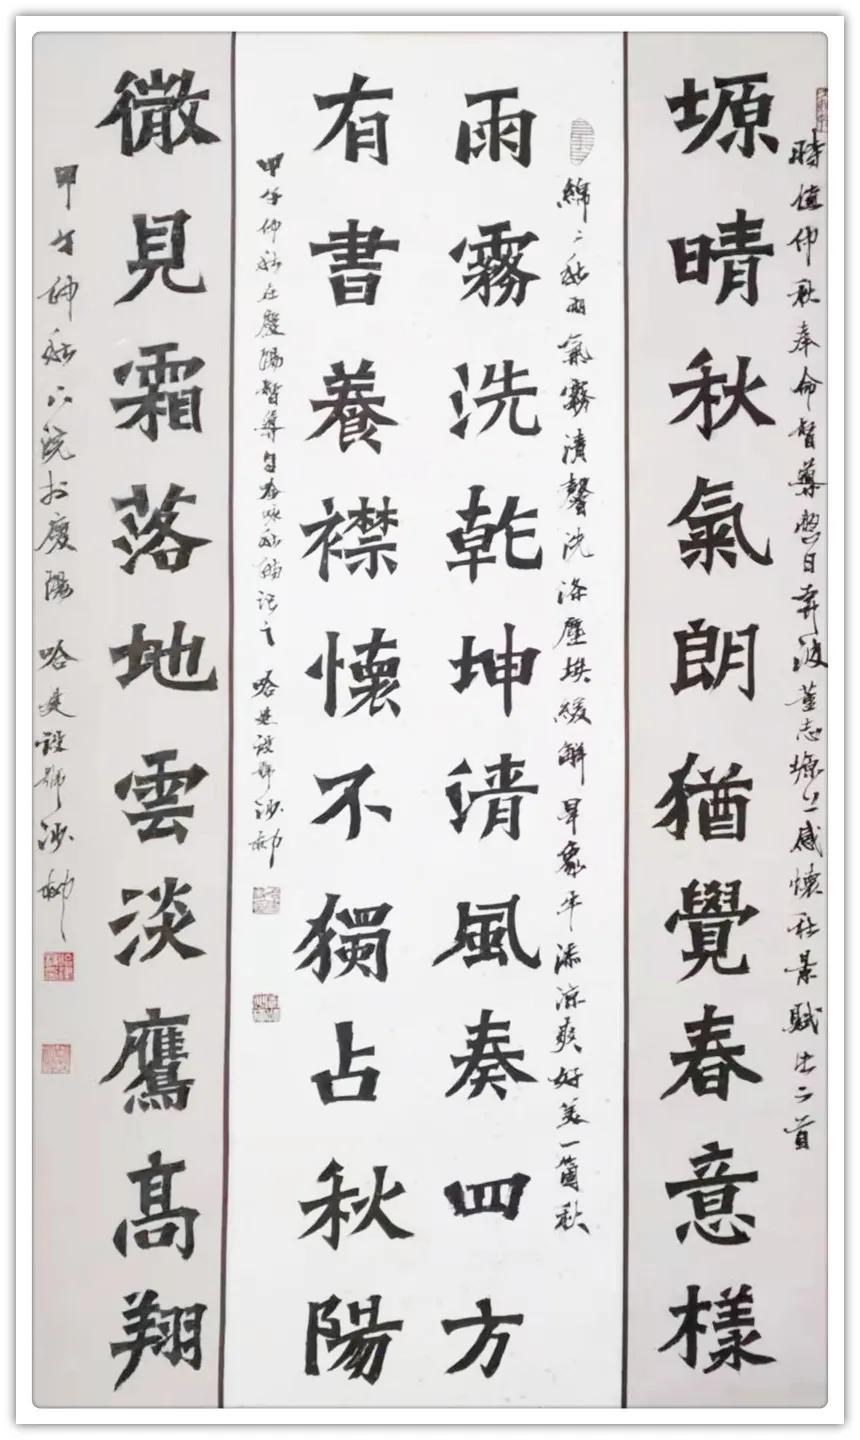 時值仲秋奉命督導整日奔波董志塬上感懷秋景賦二首
塬晴秋氣朗猶覺春意樣
綿〻秋雨氣霧清馨洗滌塵埃緩解旱象平添涼爽好美一箇秋
雨霧洗乾坤清風奏四方
有書養襟懷不獨占秋陽
甲午仲秋在慶陽督導自詠秋記之 哈建設號沙
微見霜落地雲淡鷹髙翔
甲午仲秋下浣於慶陽 哈建設號沙